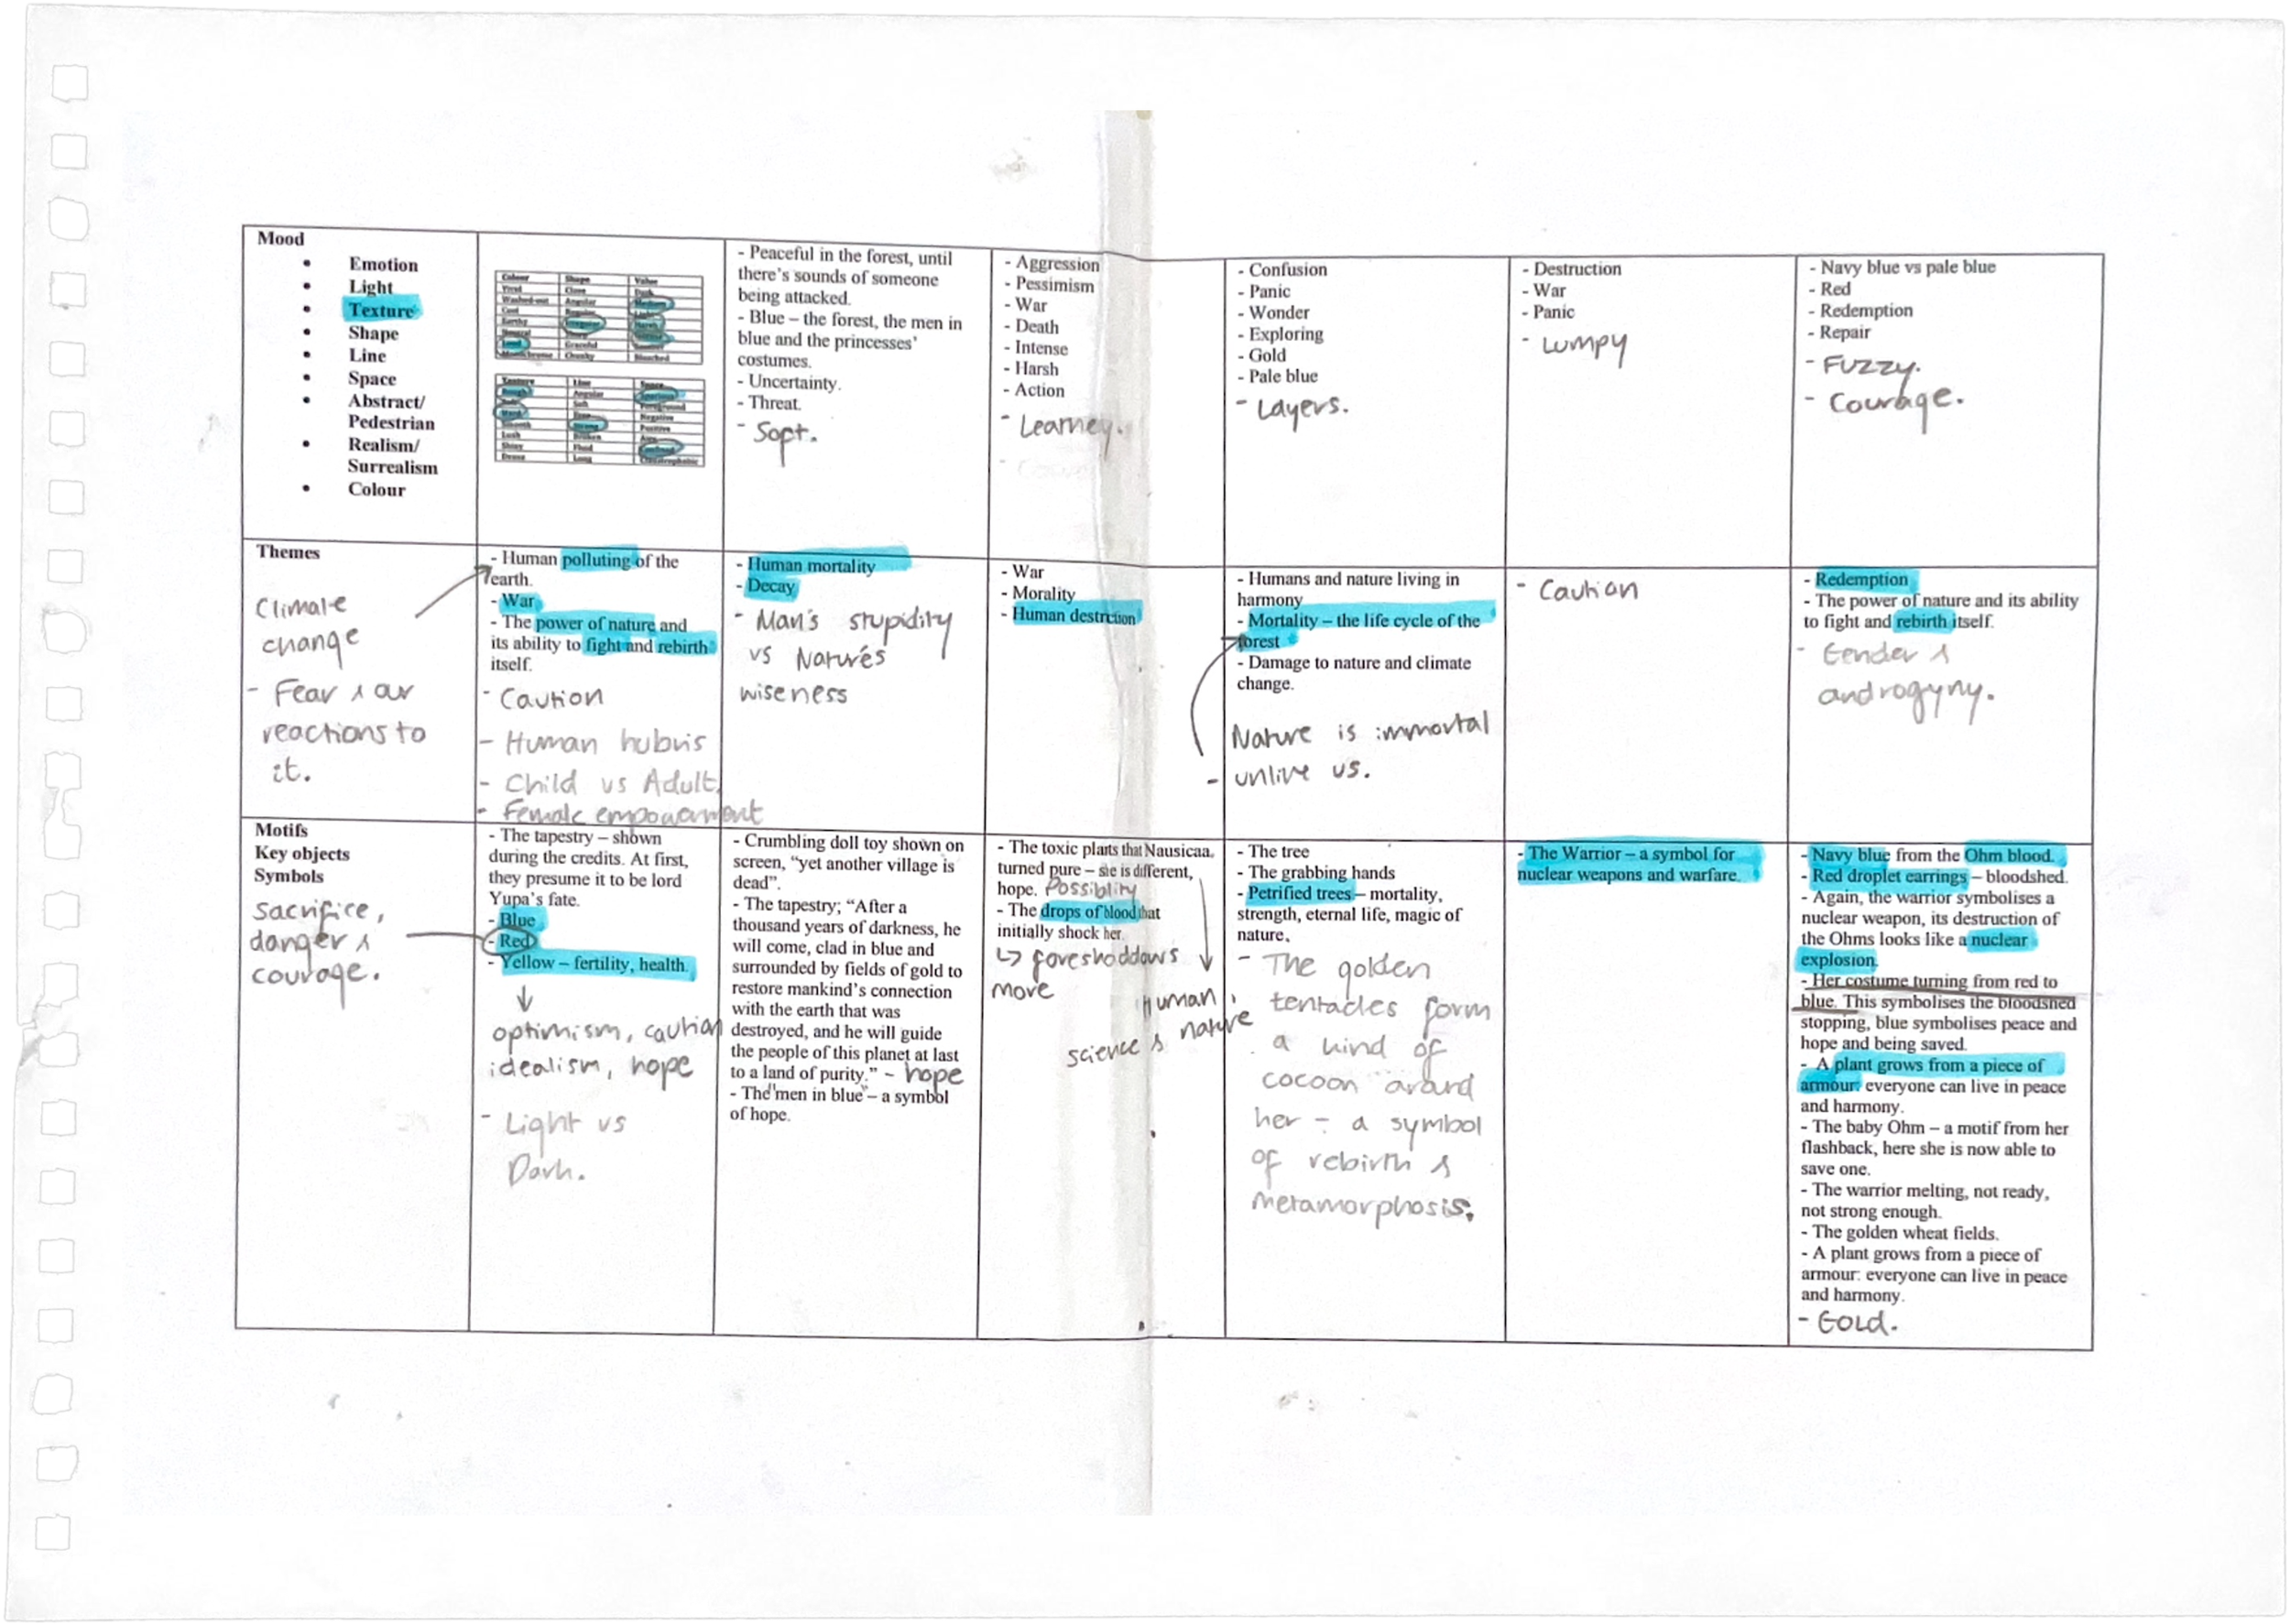 Mood
Emotion
Light
Texture
Shape
Line
Space
Abstract/
Pedestrian
Realism/
Surrealism
Colour
Colour Shape Value
Texture Line Space
- Peaceful in the forest, until
there's sounds of someone
being attacked.
- Blue – the forest, the men in
blue and the princesses'
costumes.
- Uncertainty.
- Threat.
- Soft.
- Aggression
- Pessimism
- War
- Death
- Intense
- Harsh
- Action
- Confusion
- Panic
- Wonder
- Exploring
- Gold
- Pale blue
- Layers.
- Destruction
- War
- Panic
- Lumpy
- Navy blue vs pale blue
- Red
- Redemption
- Repair
- Fuzzy.
- Courage.
Themes
Climate
change
- Fear & our
reactions to
it.
- Human polluting of the
earth.
- War
- The power of nature and
its ability to fight and rebirth
itself.
- Caution
- Human hubris
- Child vs Adult.
- Female empowerment
- Human mortality
- Decay
- Man's stupidity
vs Nature's
wiseness
- War
- Morality
- Human destruction
- Humans and nature living in
harmony
- Mortality – the life cycle of the
forest
- Damage to nature and climate
change.
Nature is immortal
- unlike us.
- Caution
- Redemption
- The power of nature and its ability
to fight and rebirth itself.
- Gender &
androgyny.
Motifs
Key objects
Symbols
sacrifice,
danger &
courage.
- The tapestry – shown
during the credits. At first,
they presume it to be lord
Yupa's fate.
- Blue
- Red
- Yellow – fertility, health.
↓
optimism, caution
idealism, hope
- Light vs
Dark.
- Crumbling doll toy shown on
screen, “yet another village is
dead”.
- The tapestry; “After a
thousand years of darkness, he
will come, clad in blue and
surrounded by fields of gold to
restore mankind's connection
with the earth that was
destroyed, and he will guide
the people of this planet at last
to a land of purity.” - hope
- The "men in blue" – a symbol
of hope.
- The toxic plants that Nausicaa.
turned pure – she is different,
hope. Possiblity
- The drops of blood that
initially shock her.
↳ foreshaddows
more
Human,
science & nature
- The tree
- The grabbing hands
- Petrified trees – mortality,
strength, eternal life, magic of
nature.
- The golden
tentacles form
a kind of
cocoon around
her - a symbol
of rebirth &
metamorphosis.
- The Warrior – a symbol for
nuclear weapons and warfare.
- Navy blue from the Ohm blood.
- Red droplet earrings – bloodshed.
- Again, the warrior symbolises a
nuclear weapon, its destruction of
the Ohms looks like a nuclear
explosion.
- Her costume turning from red to
blue. This symbolises the bloodshed
stopping, blue symbolises peace and
hope and being saved.
- A plant grows from a piece of
armour: everyone can live in peace
and harmony.
- The baby Ohm – a motif from her
flashback, here she is now able to
save one.
- The warrior melting, not ready,
not strong enough.
- The golden wheat fields.
- A plant grows from a piece of
armour: everyone can live in peace
and harmony.
- Gold.